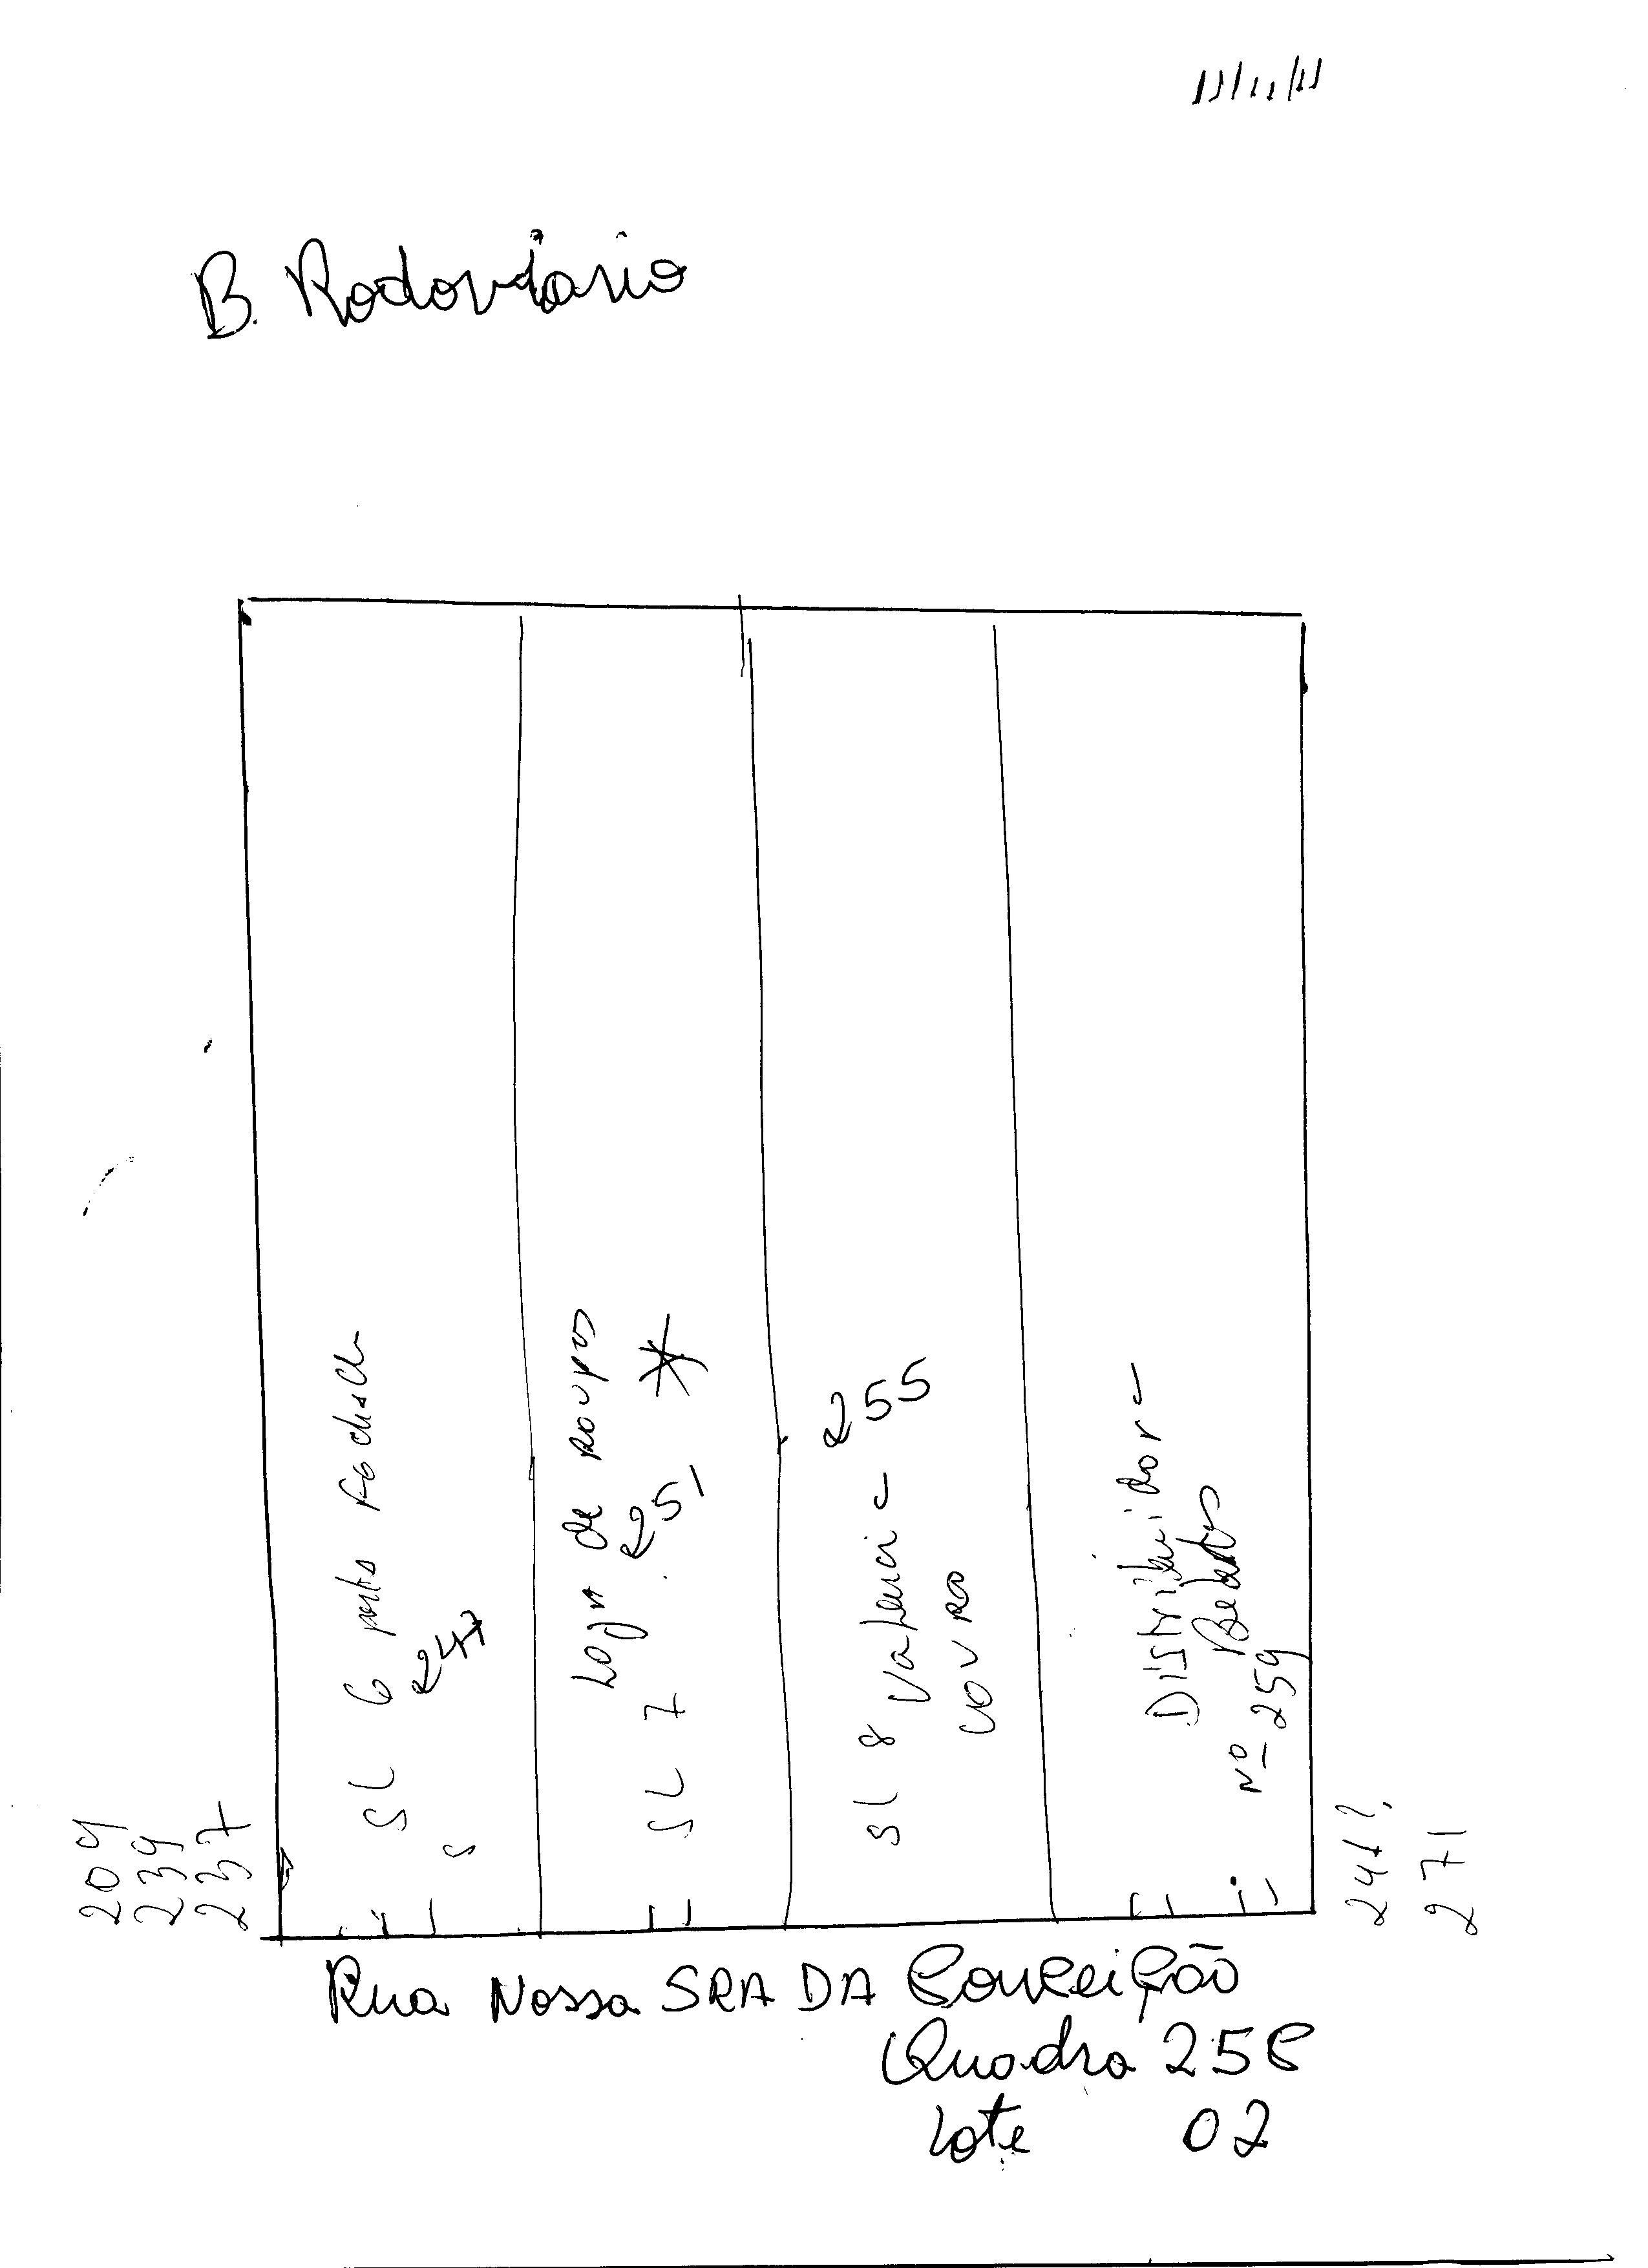 11/11/11
B. Rodoviário
SL 6 porta Fechada
247
Loja de Roupas
251
SL 7
SL 8 Valencia 255
couro
Distribuidora
Bebidas
Nº 259
209
239
237
271
Rua Nossa SRA DA Conceição
Quadra 25
Lote 02